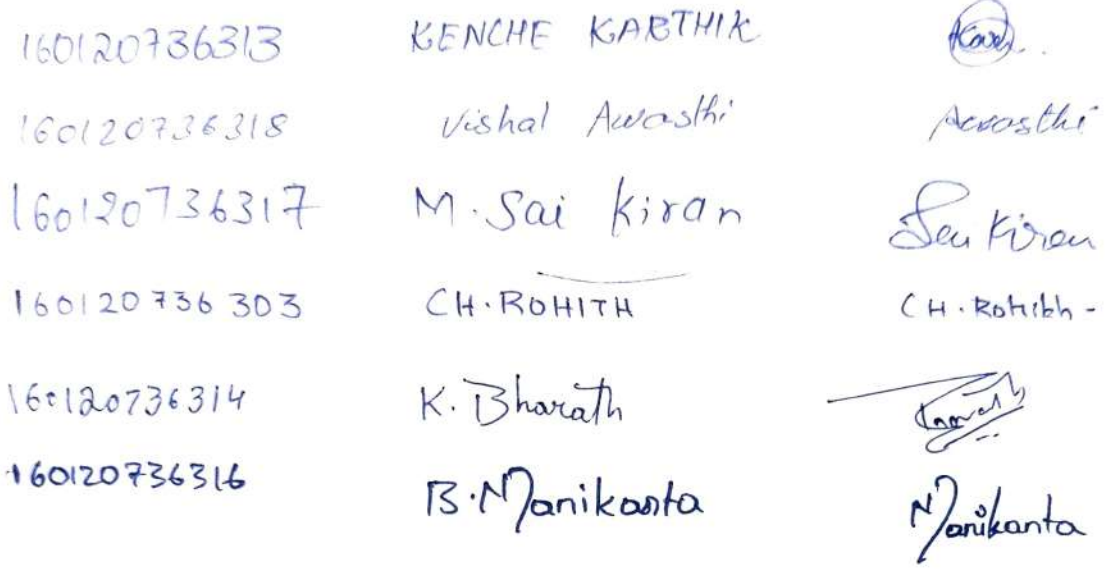 160120736313 KENCHE KARTHIK
160120736318 Vishal Awasthi Awasthi
160120736317 M. Sai Kiran Sai Kiran
160120736303 CH. ROHITH CH. Rohith -
160120736314 K. Bharath
160120736316 B. Manikanta Manikanta